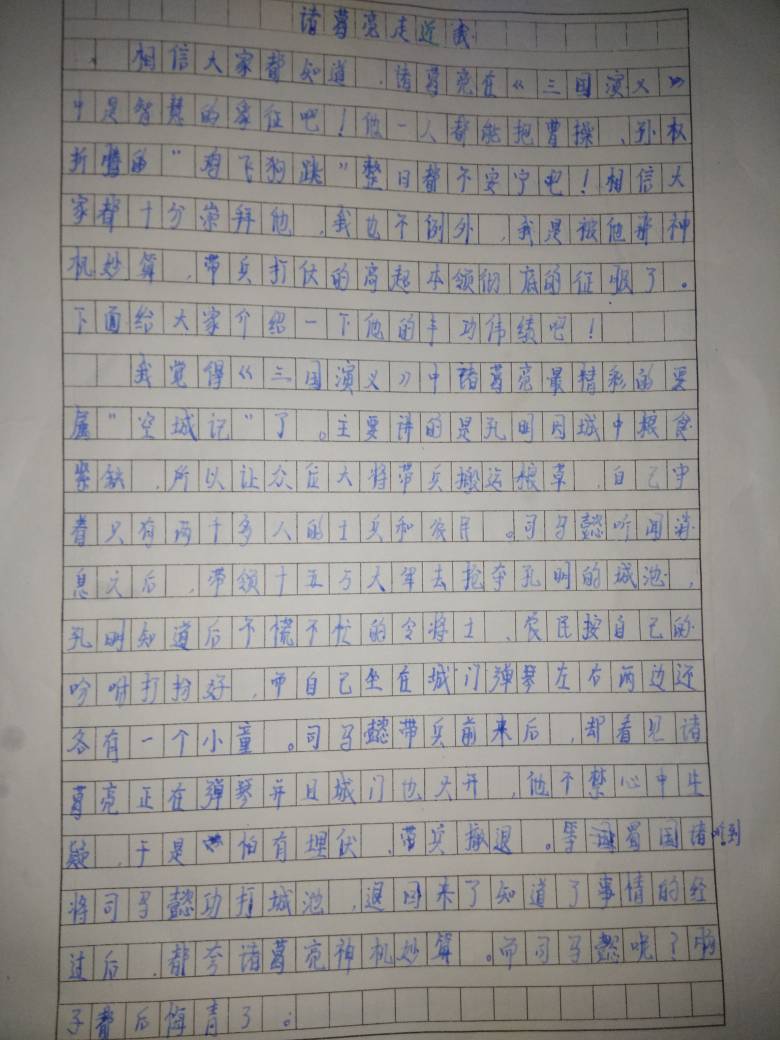 诸葛亮走近我
相信大家都知道,诸葛亮在《三国演义》
中是智慧的象征吧!他一人都能把曹操、孙权
折 的"鸡飞狗跳"整日都不安宁吧!相信大
家都十分崇拜他,我也不例外,我是被他那神
机妙算,带兵打仗的高超本领彻底的征服了。
下面给大家介绍一下他的丰功伟绩吧!
我觉得《三国演义》中诸葛亮最精彩的要
属"空城记"了。主要讲的是孔明因城中粮食
紧缺,所以让众位大将带兵搬运粮草,自己守
着只有两千多人的士兵和农民。司马懿听闻消
息之后,带领十五万大军去抢夺孔明的城池,
孔明知道后不慌不忙的令将士、农民按自己的
吩咐打扮好,而自己坐在城门弹琴左右两边还
各有一个小童。司马懿带兵前来后,却看见诸
葛亮正在弹琴并且城门也大开,他不禁心中生
疑,于是怕有埋伏,带兵撤退。等蜀国诸 听到
将司马懿功打城池,退回来了知道了事情的经
过后,都夸诸葛亮神机妙算。而司马懿呢?肠
子都后悔青了。